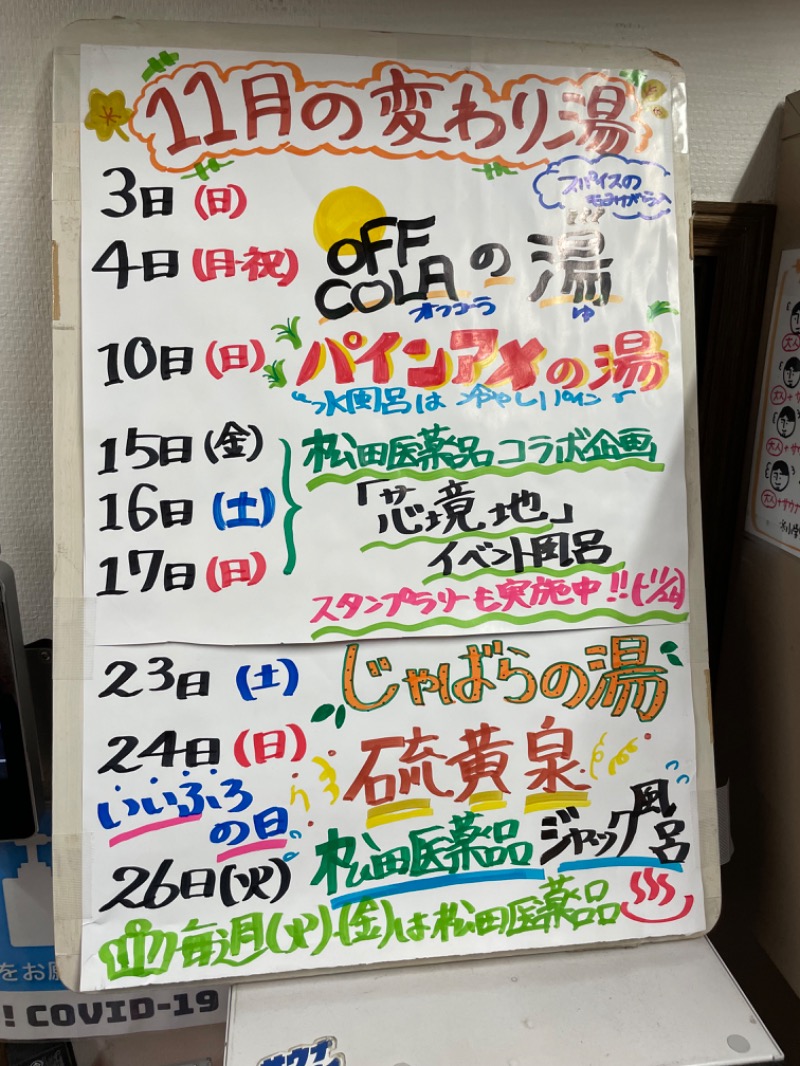 11月の変わり湯
スパイスの
3日(日)
4日(月・祝)
OFF
COLAの湯
オフコーラ ゆ
10日(日) パインアメの湯
"水風呂は 冷やしパイン"
15日(金) 松田医薬品コラボ企画
16日(土) 「芯境地」
イベント風呂
17日(日)
スタンプラリーも実施中!!
23日(土) じゃばらの湯
24日(日) 硫黄泉
いいふろ
の日
26日(火) 松田医薬品 ジャック風呂
毎週(火)・(金)は松田医薬品
をお願
! COVID-19
サウナ